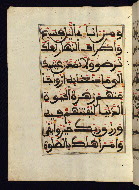 ومن اناي اليل فسبح
واطراف النهار لعلك
ترضى ولا تمدن عينيك
الى ما متعنا به ازوجا
منهم زهرة الحيوة
الدنيا لنفتنهم فيه
ورزق ربك خير وابقى
وامر اهلك بالصلوة